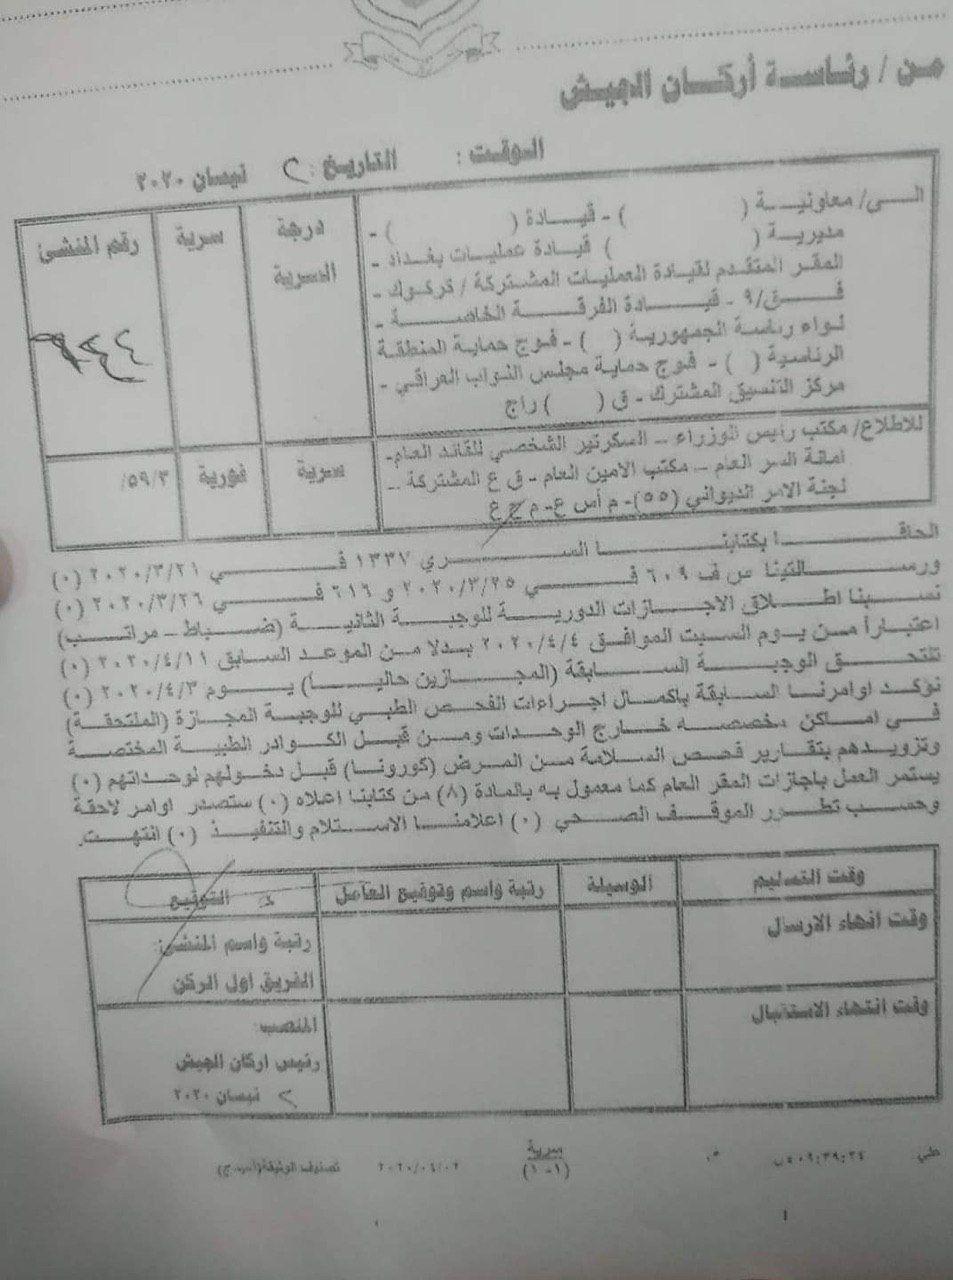 من / رئاسة أركان الجيش
الوقت : التاريخ : ٢ نيسان ٢٠٢٠
الى/ معاونية ( ) - قيادة ( ) -
مديرية ( ) قيادة عمليات بغداد -
المقر المتقدم لقيادة العمليات المشتركة / كركوك -
فق/٩ - قيادة الفرقة الخاصة -
لواء رئاسة الجمهورية ( ) - فوج حماية المنطقة
الرئاسية ( ) - فوج حماية مجلس النواب العراقي -
مركز التنسيق المشترك - ق ( ) راج
درجة السرية
سرية
رقم المنشئ
٦٤٤
للاطلاع/ مكتب رئيس الوزراء - السكرتير الشخصي للقائد العام -
امانة السر العام - مكتب الامين العام - ق ع المشتركة -
لجنة الامر الديواني (٥٥) - م أس ع - م ج ع
سرية
فورية
٥٩/٣/
الحاقا بكتابنا السري ١٣٣٧ في ٢٠٢٠/٣/٢١ (٠)
ورسالتينا س ف ٦٠٩ في ٢٠٢٠/٣/٢٥ و ٦١٦ في ٢٠٢٠/٣/٢٦ (٠)
نسبنا اطلاق الاجازات الدورية للوجبة الثانية (ضباط - مراتب)
اعتباراً من يوم السبت الموافق ٢٠٢٠/٤/٤ بدلا من الموعد السابق ٢٠٢٠/٤/١١ (٠)
تلتحق الوجبة السابقة (المجازين حاليا) يوم ٢٠٢٠/٤/٣ (٠)
نؤكد اوامرنا السابقة باكمال اجراءات الفحص الطبي للوجبة المجازة (الملتحقة)
في اماكن مخصصه خارج الوحدات ومن قبل الكوادر الطبية المختصة
وتزويدهم بتقارير فحص السلامة من المرض (كورونا) قبل دخولهم لوحداتهم (٠)
يستمر العمل باجازات المقر العام كما معمول به بالمادة (٨) من كتابنا اعلاه (٠) ستصدر اوامر لاحقة
وحسب تطور الموقف الصحي (٠) اعلامنا الاستلام والتنفيذ (٠) انتهت.
وقت التسليم الوسيلة رتبة واسم وتوقيع العامل التوقيع
وقت انهاء الارسال
رتبة واسم المنشئ:
الفريق اول الركن
وقت انتهاء الاستقبال
المنصب:
رئيس اركان الجيش
٢ نيسان ٢٠٢٠
سرية
(١-١)
٢٠٢٠/٠٤/٠٢